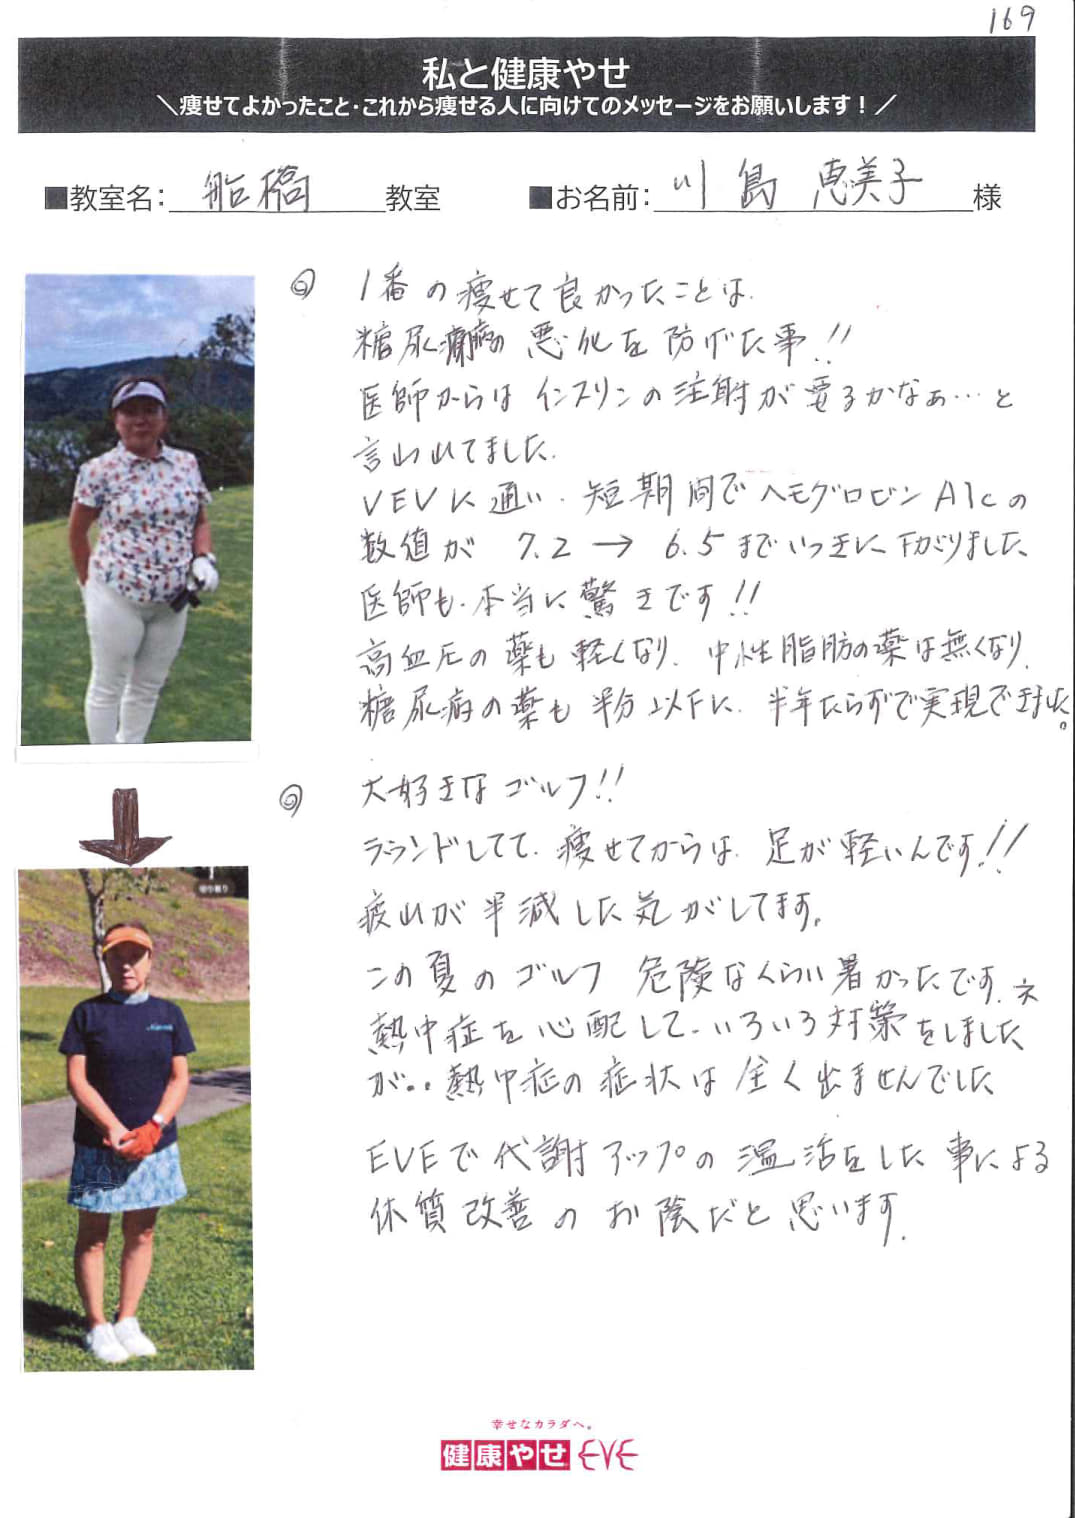 169
私と健康やせ
＼痩せてよかったこと・これから痩せる人に向けてのメッセージをお願いします！／
■教室名：船橋 教室 ■お名前：川島 恵美子 様
◎ 1番の痩せて良かったことは、
糖尿病の悪化を防げた事!!
医師からはインスリンの注射が要るかなぁ…と
言われてました。
VEVに通い、短期間でヘモグロビンA1cの
数値が 7.2 → 6.5 までいっきに下がりました
医師も、本当に驚きです!!
高血圧の薬も軽くなり、中性脂肪の薬は無くなり、
糖尿病の薬も半分以下に、半年たらずで実現できました。
◎ 大好きなゴルフ!!
ラランドしてて、痩せてからは、足が軽いんです!!
疲れが半減した気がしてます。
この夏のゴルフ 危険なくらい暑かったですネ
熱中症を心配して、いろいろ対策をしました
が.. 熱中症の症状は全く出ませんでした
EVEで代謝アップの温活をした事による
体質改善のお陰だと思います。
幸せなカラダへ。
健康やせ EVE